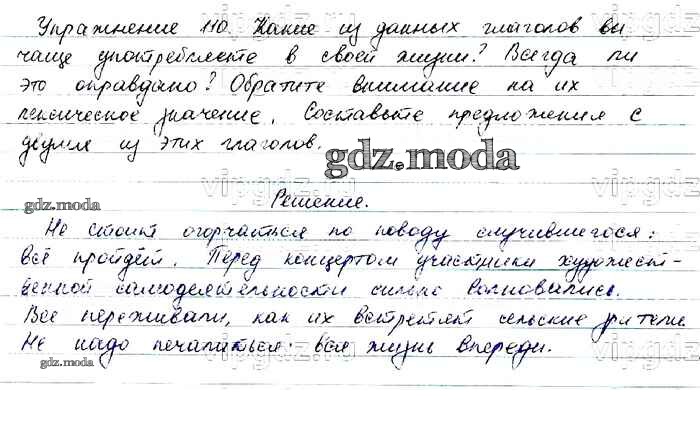 Упражнение 110. Какие из данных глаголов вы
чаще употребляете в своей жизни? Всегда ли
это оправдано? Обратите внимание на их
лексическое значение. Составьте предложения с
двумя из этих глаголов.
gdz.moda
Решение.
gdz.moda
Не стоит огорчаться по поводу случившегося:
всё пройдёт. Перед концертом участники художест-
венной самодеятельности сильно волновались.
Все переживали, как их встретят сельские зрители.
Не надо печалиться: вся жизнь впереди.
gdz.moda
vipgdz.ru